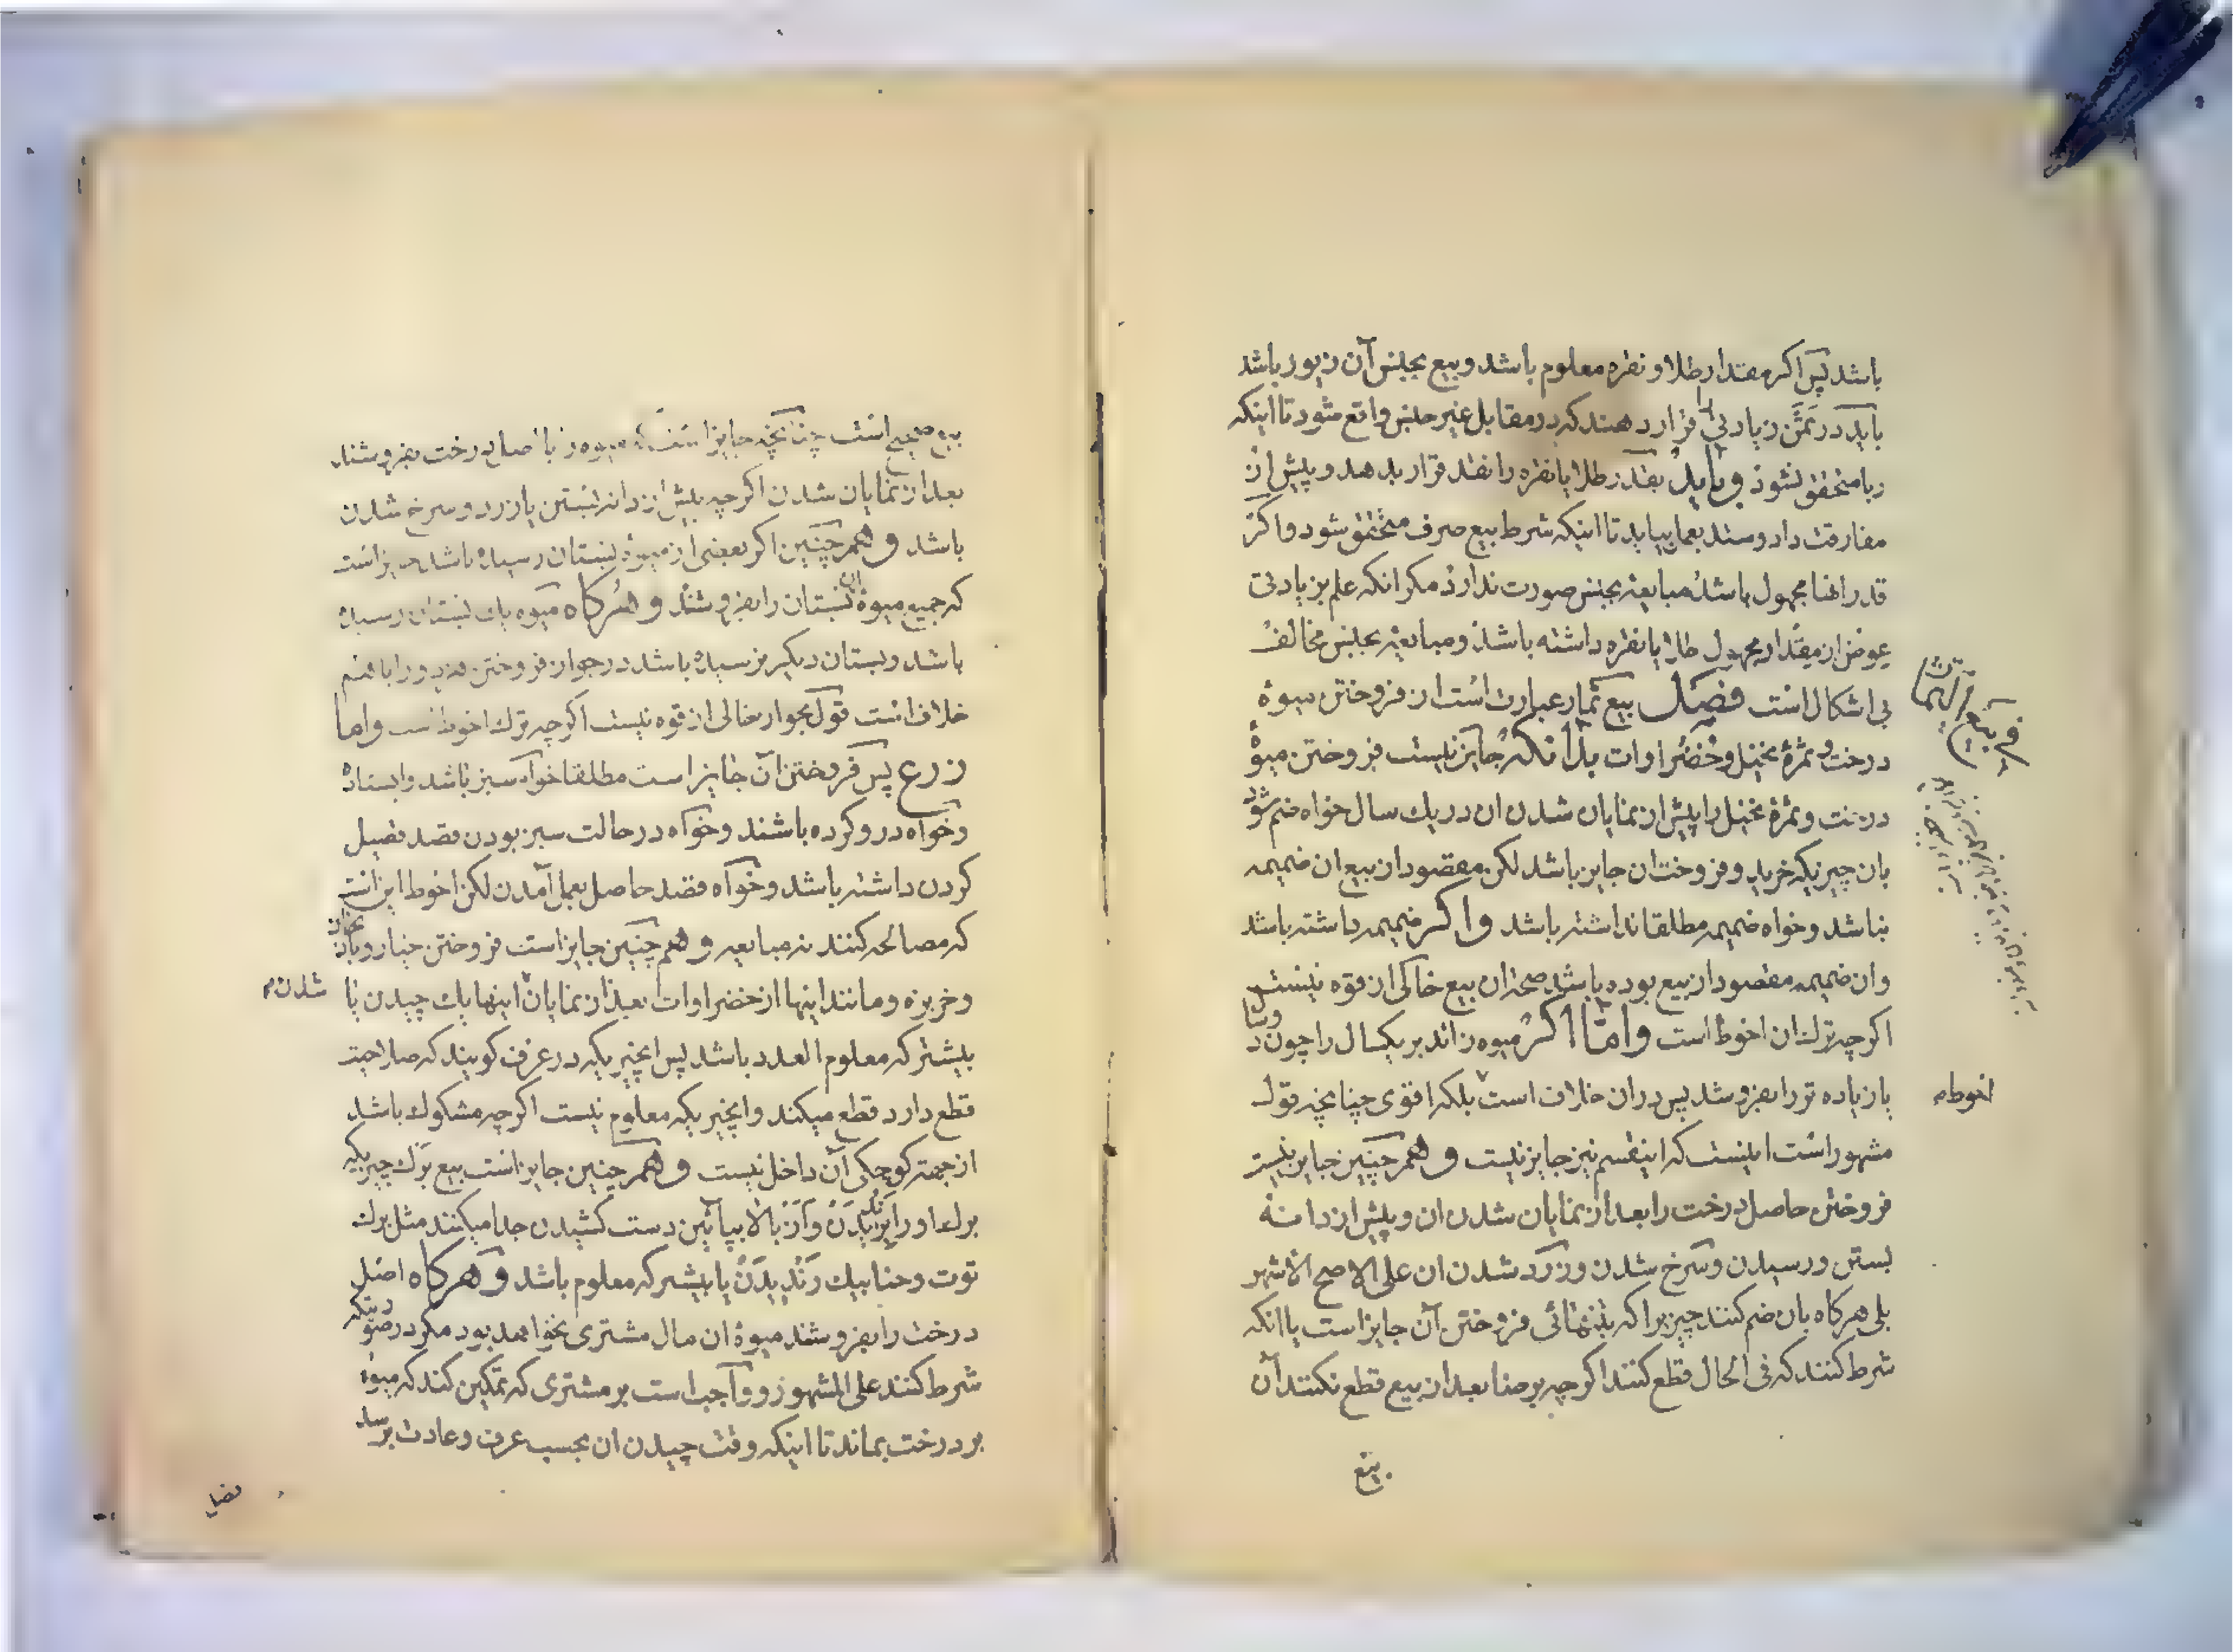 باشد پس اگر مقدار طلا و نقره معلوم باشد و بیع بجنس آن زیور باشد
باید در ثمن زیادتی را قرار دهند که در مقابل غیر جنس واقع شود تا اینکه
ربا متحقق نشود و باید بقدر طلا یا نقره را نقد قرار بدهد و پیش از
مفارقت داد و ستد بعمل بیاید تا اینکه شرط بیع صرف متحقق شود و اگر
قدر انها مجهول باشد مبایعه بجنس صورت ندارد مکر انکه علم بزیادتی
عوض از مقدار مجهول طلا یا نقره داشته باشد و مبایعه بجنس مخالف
بی اشکال است فصل بیع ثمار عبارت است از فروختن میوهٔ
درخت و ثمرهٔ نخیل و خضراوات بدانکه جایز نیست فروختن میوهٔ
درخت و ثمرهٔ نخیل را پیش از نمایان شدن ان در یك سال خواه ضم شود
بان چیزیکه خرید و فروخت ان جایز باشد لکن مقصود از بیع ان ضمیمه
نباشد و خواه ضمیمه مطلقا نداشته باشد و اکر ضمیمه داشته باشد
وان ضمیمه مقصود از بیع بوده باشد صحة ان بیع خالی از قوه نیست
اکرچه ترك ان احوط است و امّا اکر میوه زاند بر یکسال را چون دوسال
یا زیاده تر را بفروشد پس دران خلاف است بلکه اقوی چنانچه قول
احوط
مشهور است اینست که اینقسم نیز جایز نیست و همرچنین جایز نیست
فروختن حاصل درخت را بعد از نمایان شدن ان و پیش از دانه
بستن و رسیدن و سرخ شدن و زرد شدن ان علی الاصح الاشهر
بلی هرکاه بان ضم کنند چیزیرا که بتنهائی فروختن آن جایز است یا انکه
شرط کنند که فی الحال قطع کنند اکرچه برضا بعد از بیع قطع نکنند آن
بیع
فی بیع الثمار
بیع صحیح است چنانچه جایز است که میوه را با اصل درخت بفروشند
بعد از نمایان شدن اکرچه پیش از دانه بستن یا زرد و سرخ شدن
باشد و همرچنین اکر بعضی از میوهٔ بستان رسیدهٔ باشد جایز است
که جمیع میوهٔ ان بستان را بفروشند و هرکاه میوه یك بستان رسیدهٔ
باشد و بستان دیکر نرسیدهٔ باشد در جواز فروختن هر دو را با هم
خلاف است قول بجواز خالی از قوه نیست اکرچه ترك احوط است و اما
زرع پس فروختن آن جایز است مطلقا خواه سبز باشد و ایستادهٔ
و خواه درو کرده باشند و خواه در حالت سبز بودن قصد قصیل
کردن داشته باشد و خواه قصد حاصل بعمل آمدن لکن احوط این است
که مصالحه کنند نه مبایعه و همرچنین جایز است فروختن خیار و بادنجان
و خربزه و مانند اینها از خضراوات بعد از نمایان اینها یك چیدن یا
شدن
بیشتر که معلوم العدد باشد پس انچیزیکه در عرف کویند که صلاحیت
قطع دارد قطع میکند و انچیزیکه معلوم نیست اکرچه مشکوك باشد
از جهة کوچکی آن داخل نیست و همرچنین جایز است بیع برك چیزیکه
برك او را و از بالا بپائین دست کشیدن جدا میکنند مثل برك
توت و حنا بیك رندیدن یا بیشتر که معلوم باشد و هرکاه اصل
درخت را بفروشند میوهٔ ان مال مشتری نخواهد بود مکر در صورتیکه
شرط کنند علی المشهور و واجب است بر مشتری که تمکین کند که میوهٔ
بر درخت بماند تا اینکه وقت چیدن ان بحسب عرف و عادت برسد
فصل